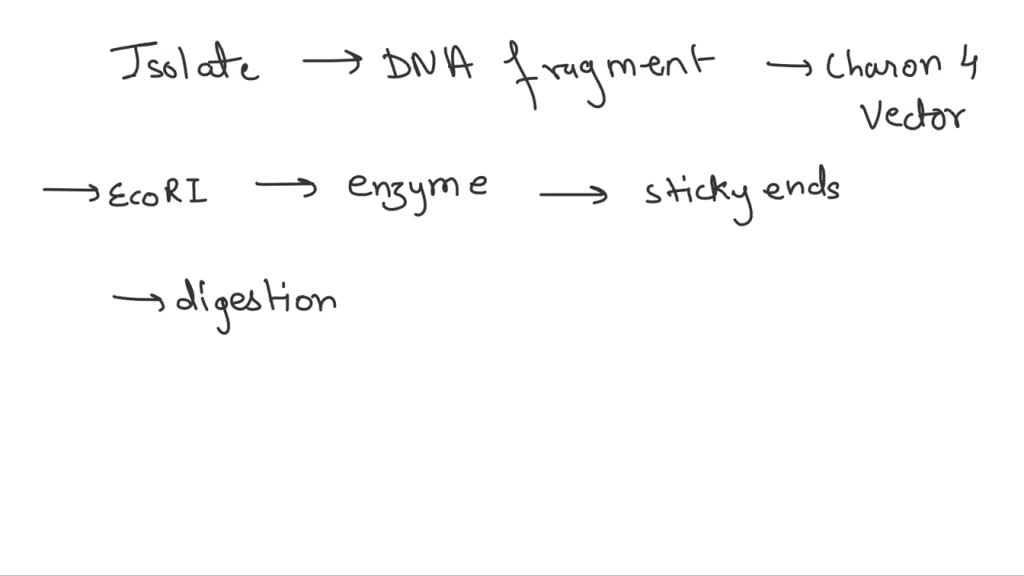 Isolate → DNA fragment → Charon 4
Vector
→ EcoRI → enzyme → sticky ends
→ digestion